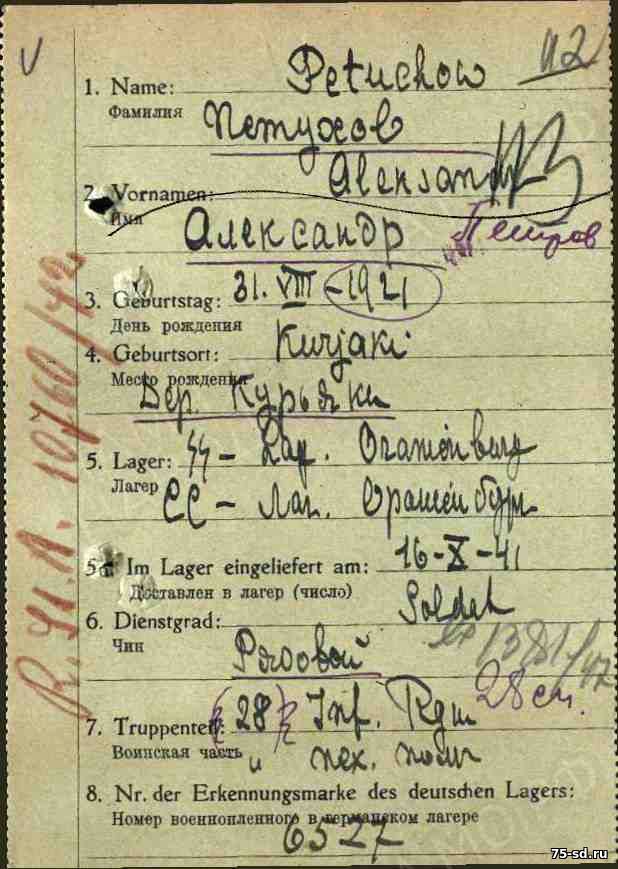 V
Petuchow
1. Name:
Фамилия
Петухов
2. Vornamen:
Имя
Александр
Петров
3. Geburtstag: 31. VIII - 1921
День рождения
4. Geburtsort: Kurjaki
Место рождения
Дер. Курьяки
5. Lager: SS - Lag. Oranienburg
Лагер
СС - Лаг.
5a. Im Lager eingeliefert am: 16-X-41
Доставлен в лагер (число)
Soldat
6. Dienstgrad:
Чин
Рядовой
28 сп.
7. Truppenteil: 28 Inf. Rgm
Воинская часть
и пех. полк
8. Nr. der Erkennungsmarke des deutschen Lagers:
Номер военнопленного в германском лагере
6527
75-sd.ru